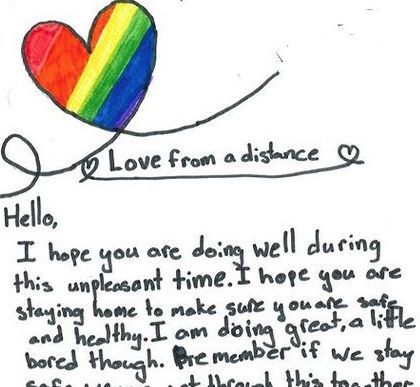 Love from a distance
Hello,
I hope you are doing well during
this unpleasant time. I hope you are
staying home to make sure you are safe
and healthy. I am doing great, a little
bored though. Remember if we stay
through this